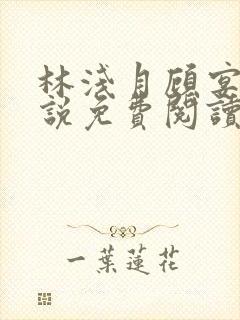 林淺月顧宴
說免費閱讀
一葉蓮花